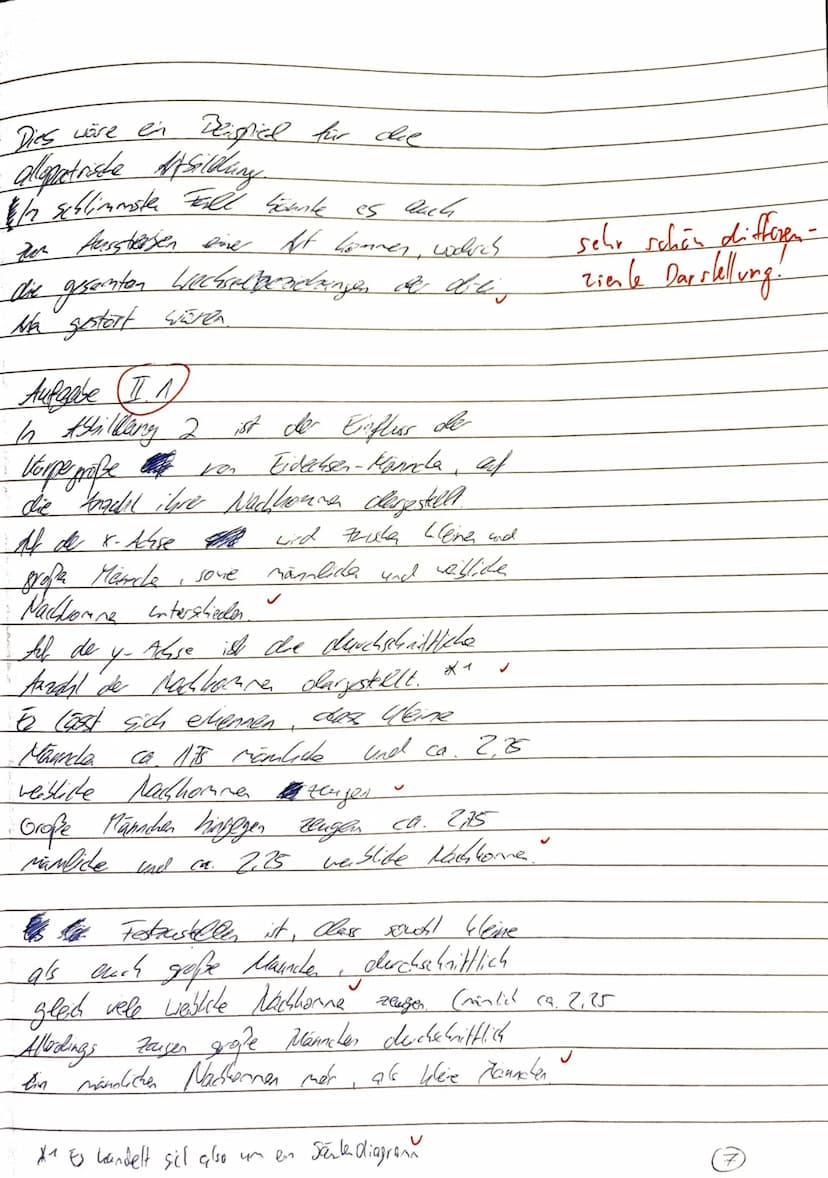 Dies wäre ein Beispiel für die
allopatrische Artbildung.
In schlimmsten Fall könnte es auch
zum Aussterben einer Art kommen, wodurch
die gesamten Wechselbeziehungen der drei
Arten gestört wären.
sehr schön differen-
zierte Darstellung!
Aufgabe II 1
In Abbildung 2 ist der Einfluss der
Körpergröße von Eidechsen-Männchen, auf
die Anzahl ihrer Nachkommen dargestellt.
Auf der x-Achse wird zwischen kleinen und
große Männchen, sowie männlichen und weiblichen
Nachkommen unterschieden.
Auf der y-Achse ist die durchschnittliche
Anzahl der Nachkommen dargestellt. *1
Es lässt sich erkennen, dass kleine
Männchen ca. 1,75 männliche und ca. 2,25
weibliche Nachkommen zeugen
Große Männchen hingegen zeugen ca. 2,75
männliche und ca. 2,25 weibliche Nachkommen.
Festzustellen ist, dass sowohl kleine
als auch große Männchen, durchschnittlich
gleich viele weibliche Nachkommen zeugen (nämlich ca. 2,25
Allerdings zeugen große Männchen durchschnittlich
Ein männlichen Nachkommen mehr, als kleine Männchen.
*1 Es handelt sich also um ein Säulendiagramm
7